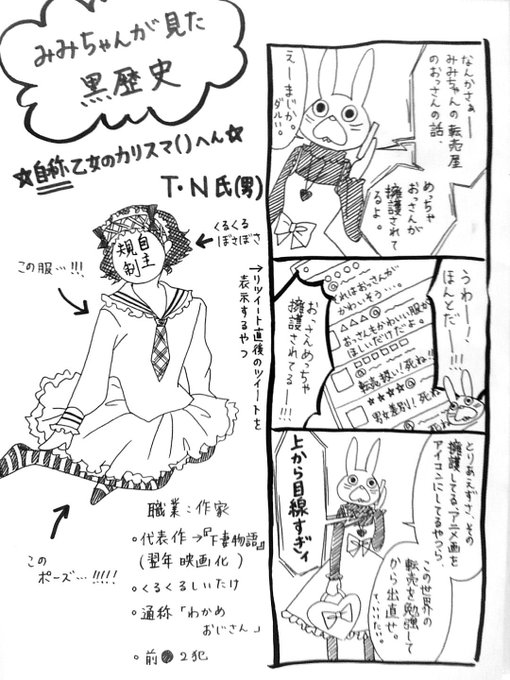 みみちゃんが見た
黒歴史
☆自称乙女のカリスマ()へん☆
T・N氏(男)
くるくる
ぼさぼさ
自主
規制
この服…!!!
→リツイート直後のツイートを
表示するやつ
この
ポーズ…!!!!!
職業:作家
・代表作→『下妻物語』
(翌年映画化)
・くるくるしいたけ
・通称「わかめ
おじさん」
・前●2犯
なんかさぁー
みみちゃんの転売屋
のおっさんの話、
めっちゃ
おっさんが
擁護されて
るよ。
えーまじか。
ダルい。
うわー!、
ほんとだー!!!
○○○○
くれはおっさんが
かわいそう…。
△△△
おっさんもかわいい服が
ほしいだけだよ。
□□□□□
転売扱い!死ね!!
☆☆☆☆
男女差別!死ね!
おっさんめっちゃ
擁護されてるー!!!
とりあえずさ、その
擁護してる、アニメ画を
アイコンにしてるやつら、
この世界の
転売を勉強して
から出直せ。
っていいたい。
上から目線すぎィ